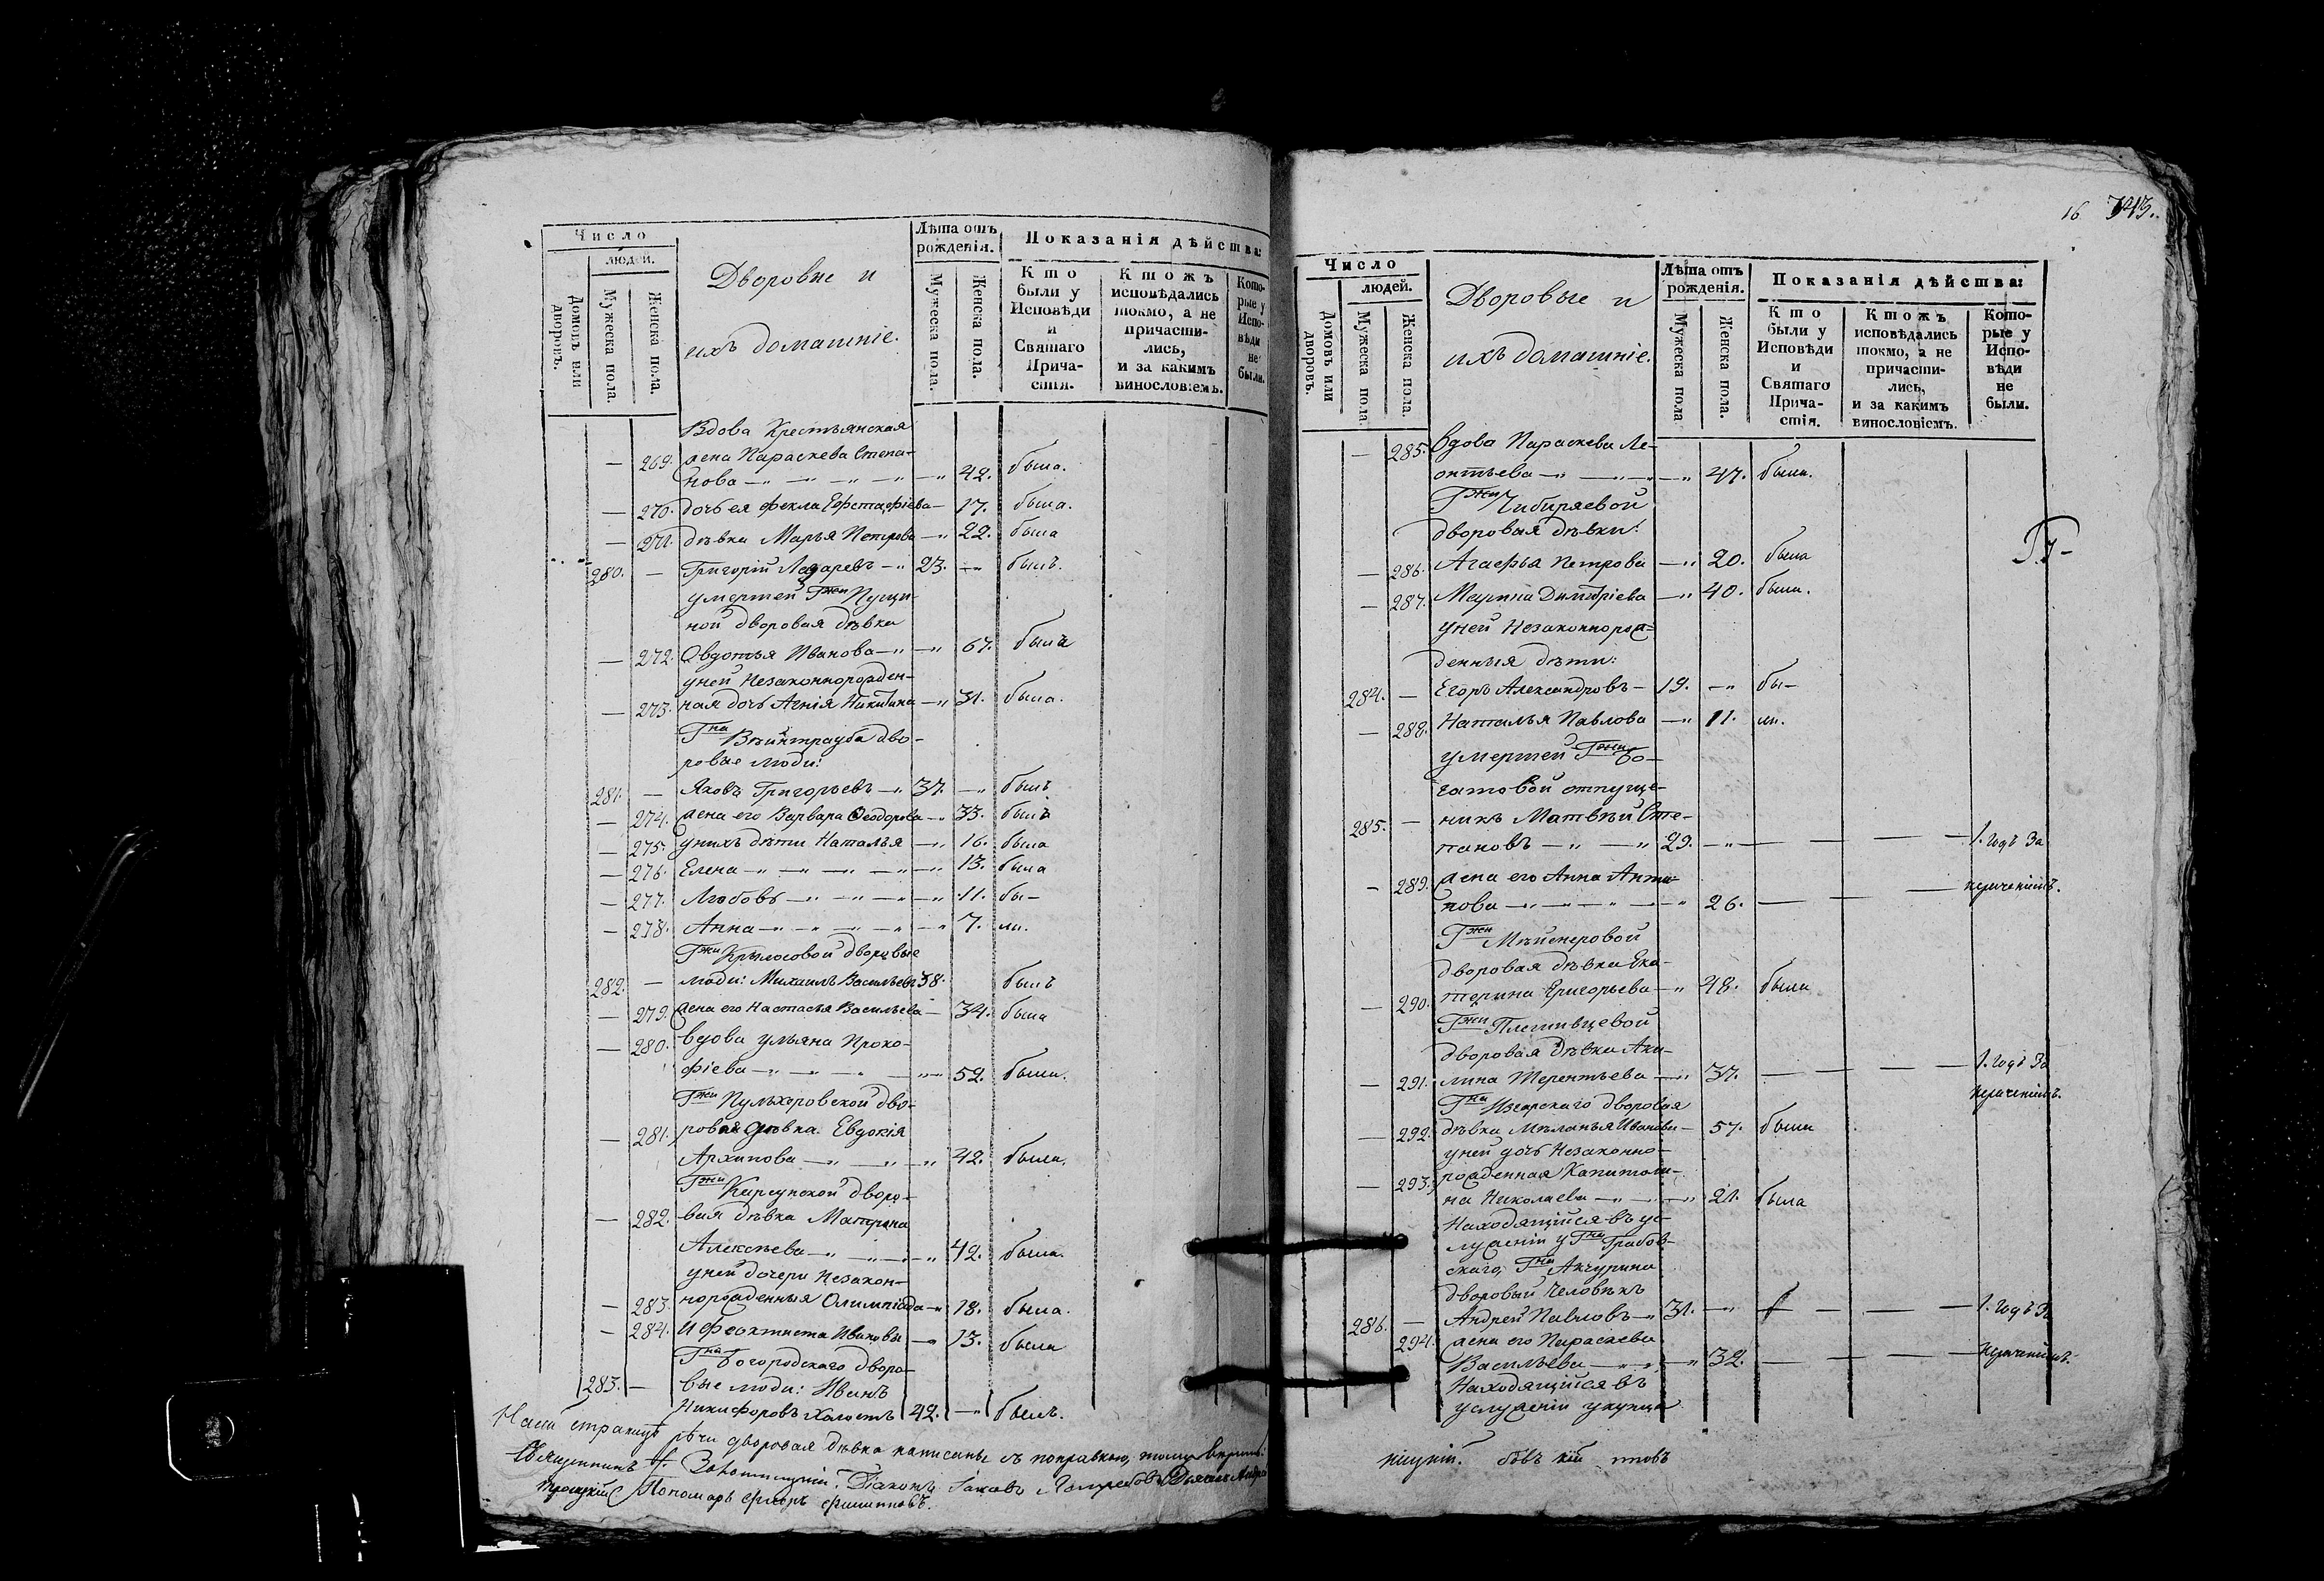 Число
людей.
Домовъ или дворовъ.
Мужеска пола.
Женска пола.
Дворовые и
ихъ домашніе.
Лѣта отъ рожденія.
Мужеска пола.
Женска пола.
Показанія дѣйства:
Кто были у Исповѣди и Святаго Прича-стія.
Ктожъ исповѣдались токмо, а не причасти-лись, и за какимъ винословіемъ.
Кото-рые у Испо-вѣди не были.
Вдова Крестьянская
— 269. жена Параскева Степа-
нова — 42. была.
— 270. дочь ея Фекла Ефстафіева — 17. была.
— 271. дѣвка Марья Петрова — 22. была
280. — Григорій Лазаревъ — 23. — былъ.
умершей Гжи Пущи-
ной дворовая дѣвка
— 272. Овдотья Иванова — 67. была
у ней Незаконнорожден-
— 273. ная дочь Агнія Никитина — 31. была.
Гна Вейнтрауба дво-
ровые люди:
281. — Яковъ Григорьевъ — 37. — былъ
— 274. жена его Варвара Феодорова — 33. была
— 275. у нихъ дѣти Наталья — 16. была
— 276. Елена — 13. была
— 277. Любовь — 11. бы-
— 278. Анна — 7. ли.
Гжи Крылосовой дворовые
282. — люди: Михаилъ Васильевъ 38. былъ
— 279. жена его Настасья Васильева — 34. была
— 280. вдова Ульяна Проко-
фіева — 52. была.
Гжи Пульхоровской дво-
— 281. ровая дѣвка Евдокія
Архипова — 42. была.
Гжи Карсунской дворо-
— 282. вая дѣвка Матрена
Алексѣева — 42. была.
у ней дочери Незакон-
— 283. норожденныя Олимпіада — 18. была.
— 284. и Феоктиста Ивановы — 13. была
Гна Богородскаго дворо-
283. — вые люди: Иванъ
Никифоровъ холостъ 42. — былъ.
На сей страницѣ рѣчи дворовая дѣвка написаны съ поправкою,
Священникъ
Діаконъ Іаковъ
Пономарь Филиповъ.
16 743.
Число
людей.
Домовъ или дворовъ.
Мужеска пола
Женска пола.
Дворовые и
ихъ домашніе.
Лѣта отъ рожденія.
Мужеска пола
Женска пола.
Показанія дѣйства:
Кто были у Исповѣди и Святаго Прича-стія.
Ктожъ исповѣдались токмо, а не причасти-лись, и за какимъ винословіемъ.
Кото-рые у Испо-вѣди не были.
— 285. вдова Параскева Ле-
онтьева — 47. была.
Гжи Чибиряевой
дворовая дѣвки:
— 286. Агафья Петрова — 20. была
— 287. Марина Димитріева — 40. была.
у ней Незаконнорож-
денныя дѣти:
284. — Егоръ Александровъ — 19. — бы-
— 288. Наталья Павлова — 11. ли.
умершей Гжи Бо-
гатовой отпуще-
285. — никъ Матвѣй Сте-
пановъ — 29. — 1. годъ За
— 289. жена его Анна Анти-
пова — 26. — нераченіемъ.
Гжи Мѣйнеровой
дворовая дѣвка Ека-
— 290. терина Григорьева — 48. была
Гжи Плешивцевой
дворовая дѣвка Аку-
— 291. лина Терентьева — 37. — 1. годъ За
нераченіемъ.
Гна Изарскаго дворовая
— 292. дѣвка Меланья Иванова — 57. была
у ней дочь Незаконно-
— 293. рожденная Капитоли-
на Николаева — 21. была
Находящійся въ ус-
луженіи у Гна Грабов-
скаго, Гна Акчурина
дворовый человѣкъ
286. — Андрей Павловъ — 31. — 1. годъ За
294. жена его Параскева
Васильева — 32. — нераченіемъ.
Находящійся въ
услуженіи у купца